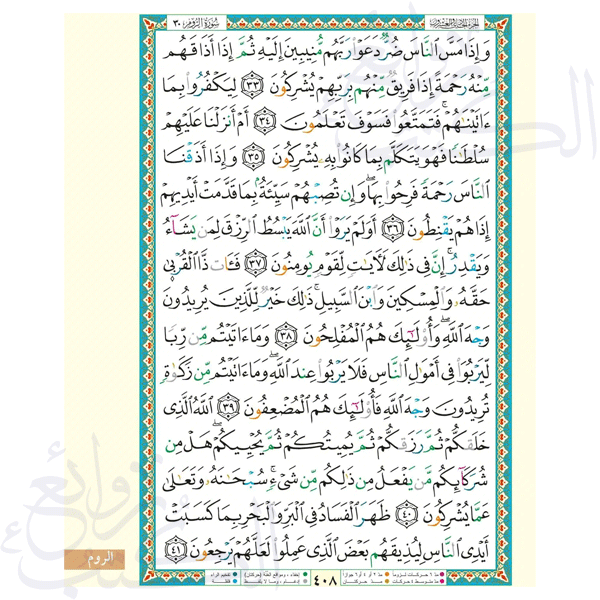 سُورَةُ الرُّومِ ٣٠
وَإِذَا مَسَّ ٱلنَّاسَ ضُرٌّ دَعَوْا۟ رَبَّهُم مُّنِيبِينَ إِلَيْهِ ثُمَّ إِذَآ أَذَاقَهُم
مِّنْهُ رَحْمَةً إِذَا فَرِيقٌ مِّنْهُم بِرَبِّهِمْ يُشْرِكُونَ ٣٣ لِيَكْفُرُوا۟ بِمَآ
ءَاتَيْنَٰهُمْ ۚ فَتَمَتَّعُوا۟ فَسَوْفَ تَعْلَمُونَ ٣٤ أَمْ أَنزَلْنَا عَلَيْهِمْ
سُلْطَٰنًا فَهُوَ يَتَكَلَّمُ بِمَا كَانُوا۟ بِهِۦ يُشْرِكُونَ ٣٥ وَإِذَآ أَذَقْنَا
ٱلنَّاسَ رَحْمَةً فَرِحُوا۟ بِهَا ۖ وَإِن تُصِبْهُمْ سَيِّئَةٌۢ بِمَا قَدَّمَتْ أَيْدِيهِمْ
إِذَا هُمْ يَقْنَطُونَ ٣٦ أَوَلَمْ يَرَوْا۟ أَنَّ ٱللَّهَ يَبْسُطُ ٱلرِّزْقَ لِمَن يَشَآءُ
وَيَقْدِرُ ۚ إِنَّ فِى ذَٰلِكَ لَءَايَٰتٍ لِّقَوْمٍ يُؤْمِنُونَ ٣٧ فَـَٔاتِ ذَا ٱلْقُرْبَىٰ
حَقَّهُۥ وَٱلْمِسْكِينَ وَٱبْنَ ٱلسَّبِيلِ ۚ ذَٰلِكَ خَيْرٌ لِّلَّذِينَ يُرِيدُونَ
وَجْهَ ٱللَّهِ ۖ وَأُو۟لَٰٓئِكَ هُمُ ٱلْمُفْلِحُونَ ٣٨ وَمَآ ءَاتَيْتُم مِّن رِّبًا
لِّيَرْبُوَا۟ فِىٓ أَمْوَٰلِ ٱلنَّاسِ فَلَا يَرْبُوا۟ عِندَ ٱللَّهِ ۖ وَمَآ ءَاتَيْتُم مِّن زَكَوٰةٍ
تُرِيدُونَ وَجْهَ ٱللَّهِ فَأُو۟لَٰٓئِكَ هُمُ ٱلْمُضْعِفُونَ ٣٩ ٱللَّهُ ٱلَّذِى
خَلَقَكُمْ ثُمَّ رَزَقَكُمْ ثُمَّ يُمِيتُكُمْ ثُمَّ يُحْيِيكُمْ ۖ هَلْ مِن
شُرَكَآئِكُم مَّن يَفْعَلُ مِن ذَٰلِكُم مِّن شَىْءٍ ۚ سُبْحَٰنَهُۥ وَتَعَٰلَىٰ
عَمَّا يُشْرِكُونَ ٤٠ ظَهَرَ ٱلْفَسَادُ فِى ٱلْبَرِّ وَٱلْبَحْرِ بِمَا كَسَبَتْ
أَيْدِى ٱلنَّاسِ لِيُذِيقَهُم بَعْضَ ٱلَّذِى عَمِلُوا۟ لَعَلَّهُمْ يَرْجِعُونَ ٤١
الروم
٤٠٨